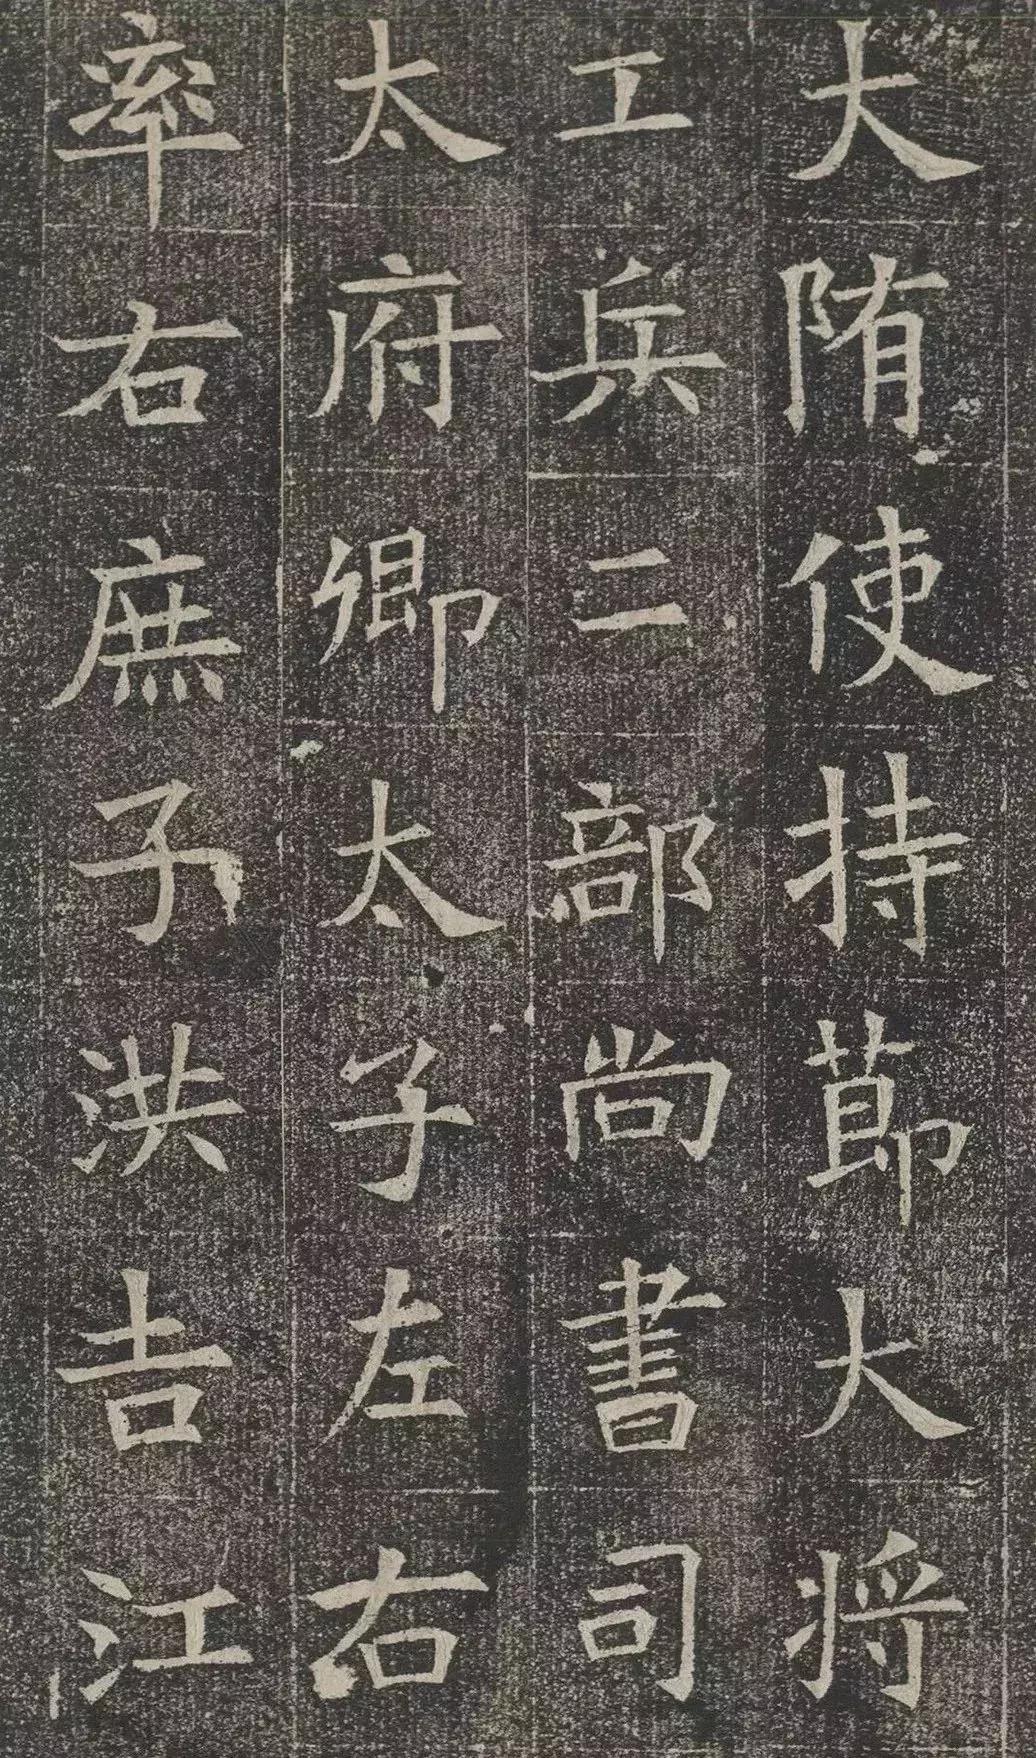 大隋使持節大將
工兵二部尚書司
太府卿太子左右
率右庶子洪吉江